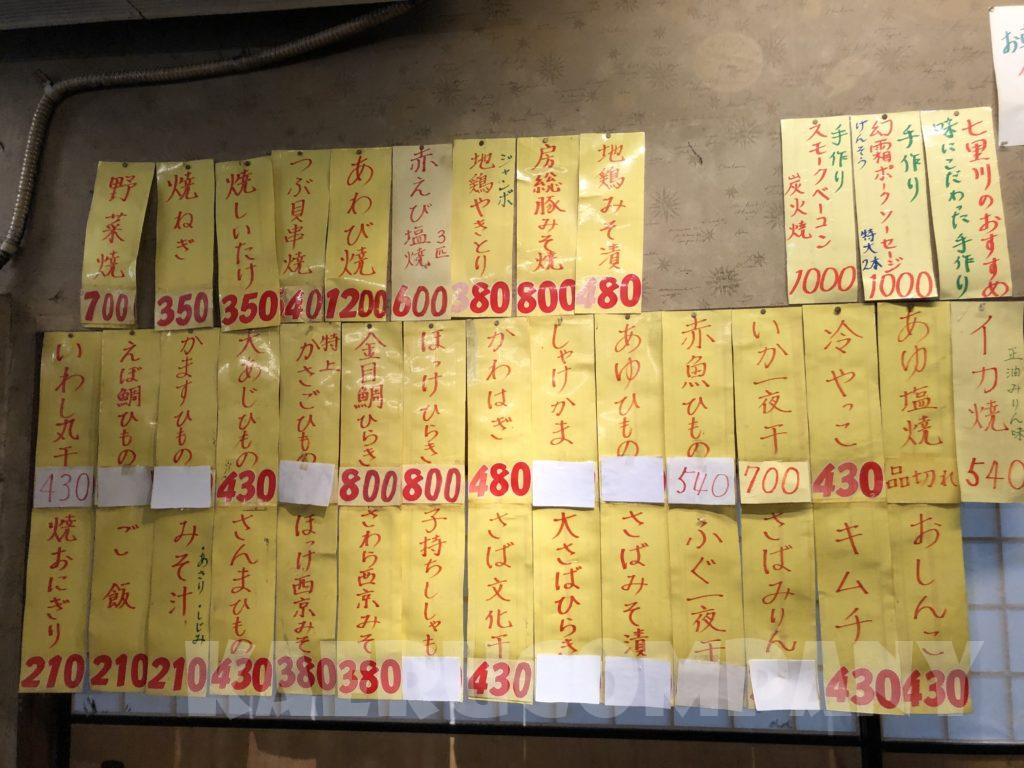 七里川のおすすめ
味にこだわった手作り
手作り
幻霜ポークソーセージ
げんそう
特大2本
1000
手作り
スモークベーコン
炭火焼
1000
地鶏みそ漬
480
房総豚みそ焼
800
ジャンボ
地鶏やきとり
380
赤えび塩焼
3匹
600
あわび焼
1200
つぶ貝串焼
焼しいたけ
350
焼ねぎ
350
野菜焼
700
イカ焼
正油みりん味
540
あゆ塩焼
品切れ
冷やっこ
430
いか一夜干
700
赤魚ひもの
540
あゆひもの
しゃけかま
かわはぎ
480
ほっけひらき
800
金目鯛ひらき
800
特上
かさごひもの
大めじひもの
430
かますひもの
えぼ鯛ひもの
いわし丸干
430
おしんこ
430
キムチ
430
さばみりん
ふぐ一夜干
さばみそ漬
大さばひらき
さば文化干
430
子持ちししゃも
さわら西京みそ
380
ほっけ西京みそ
380
さんまひもの
430
みそ汁
・あさり・しじみ
210
ご飯
210
焼おにぎり
210
KAERUCOMPANY